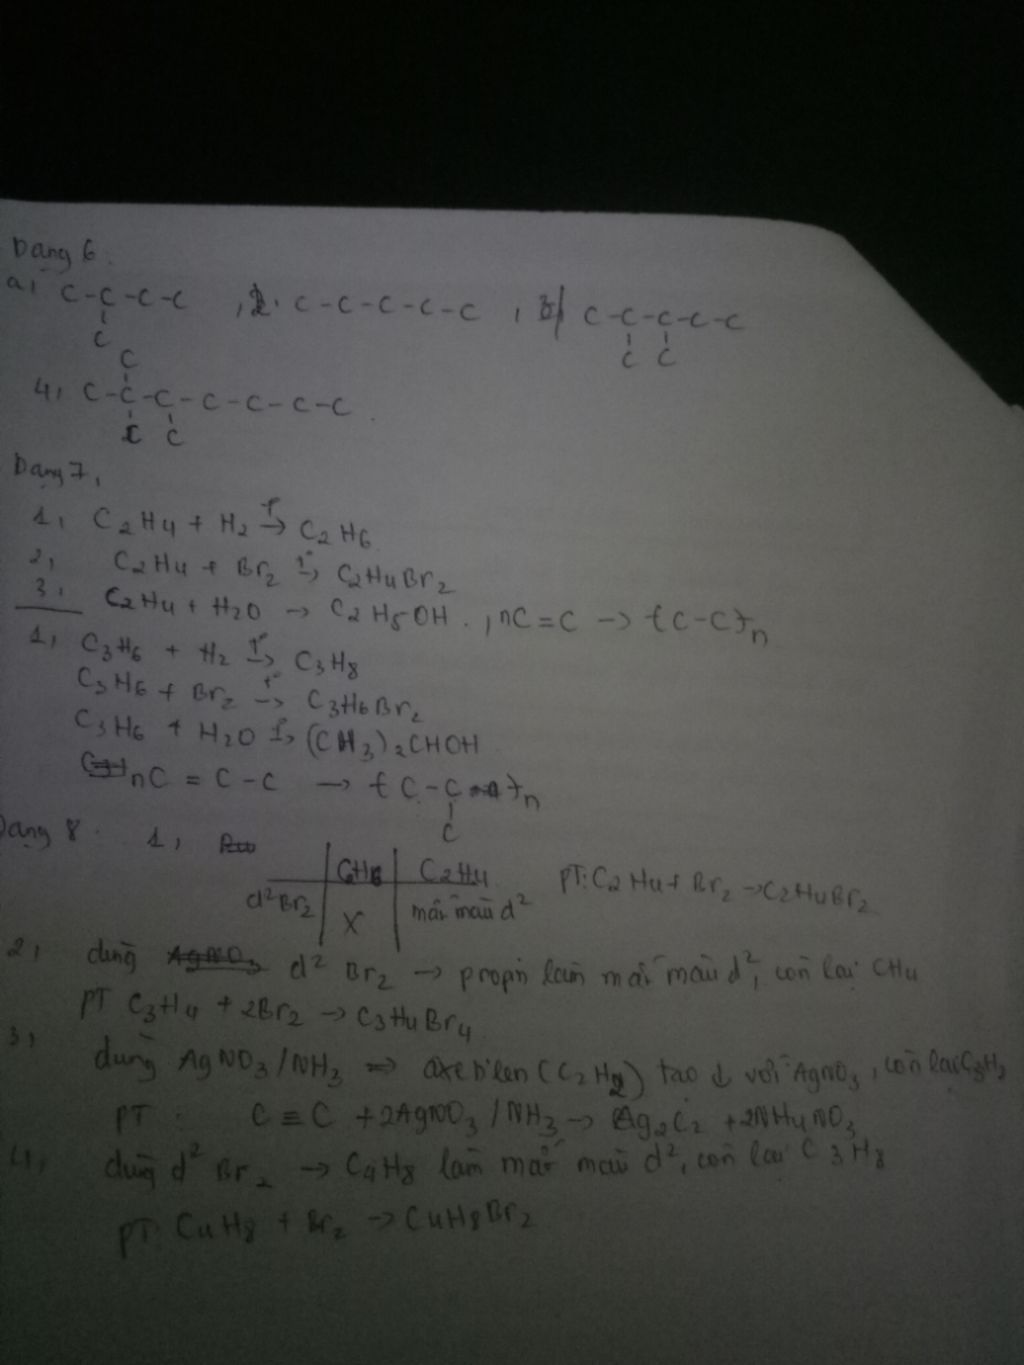 Dạng 6:
a, C-C-C-C , 2. C-C-C-C-C , 3/ C-C-C-C-C
C C C
C
4, C-C-C-C-C-C-C
C C
Dạng 7,
1, C2H4 + H2 t°→ C2H6
2, C2H4 + Br2 t°→ C2H4Br2
3. C2H4 + H2O → C2H5OH. , nC=C → {C-C}n
1, C3H6 + H2 t°→ C3H8
C3H6 + Br2 t°→ C3H6Br2
C3H6 + H2O t°→ (CH3)2CHOH
nC = C - C → {C-C}n
C
Dạng 8. 1,
C2H6 C2H4 PT: C2H4 + Br2 → C2H4Br2
d² Br2 X mất màu d²
2, dùng d² Br2 → propin làm mất màu d², còn lại CH4
PT C3H4 + 2Br2 → C3H4Br4
3, dùng AgNO3/NH3 => axetilen (C2H2) tạo ↓ với AgNO3, còn lại
PT: C≡C + 2AgNO3/NH3 → Ag2C2 + 2NH4NO3
4, dùng d² Br2 → C4H8 làm mất màu d², còn lại C3H8
PT: C4H8 + Br2 → C4H8Br2